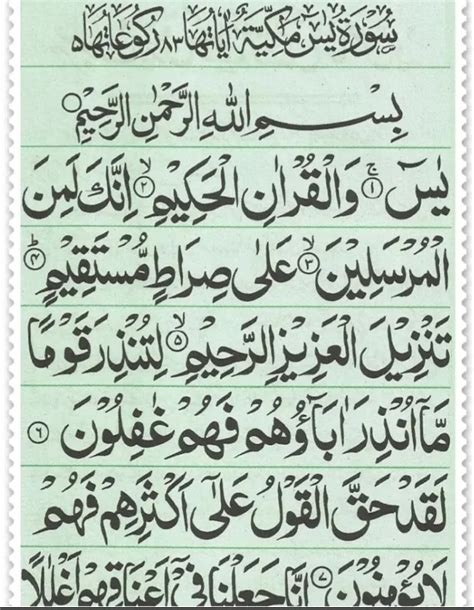 سُوْرَةُ يٰسٓ مَكِّيَّةٌ اٰيَاتُهَا ٨٣ رُكُوْعَاتُهَا ٥
بِسْمِ اللّٰهِ الرَّحْمٰنِ الرَّحِيْمِ ۝
يٰسٓ ۚ‏﴿۱﴾ وَالْقُرْاٰنِ الْحَكِيْمِ ۙ‏﴿۲﴾ اِنَّكَ لَمِنَ
الْمُرْسَلِيْنَ ۙ‏﴿۳﴾ عَلٰى صِرَاطٍ مُّسْتَقِيْمٍ ؕ‏﴿۴﴾
تَنْزِيْلَ الْعَزِيْزِ الرَّحِيْمِ ۙ‏﴿۵﴾ لِتُنْذِرَ قَوْمًا
مَّاۤ اُنْذِرَ اٰبَآؤُهُمْ فَهُمْ غٰفِلُوْنَ ‏﴿۶﴾
لَقَدْ حَقَّ الْقَوْلُ عَلٰٓى اَكْثَرِهِمْ فَهُمْ
لَا يُؤْمِنُوْنَ ‏﴿۷﴾ اِنَّا جَعَلْنَا فِىْۤ اَعْنَاقِهِمْ اَغْلٰلًا